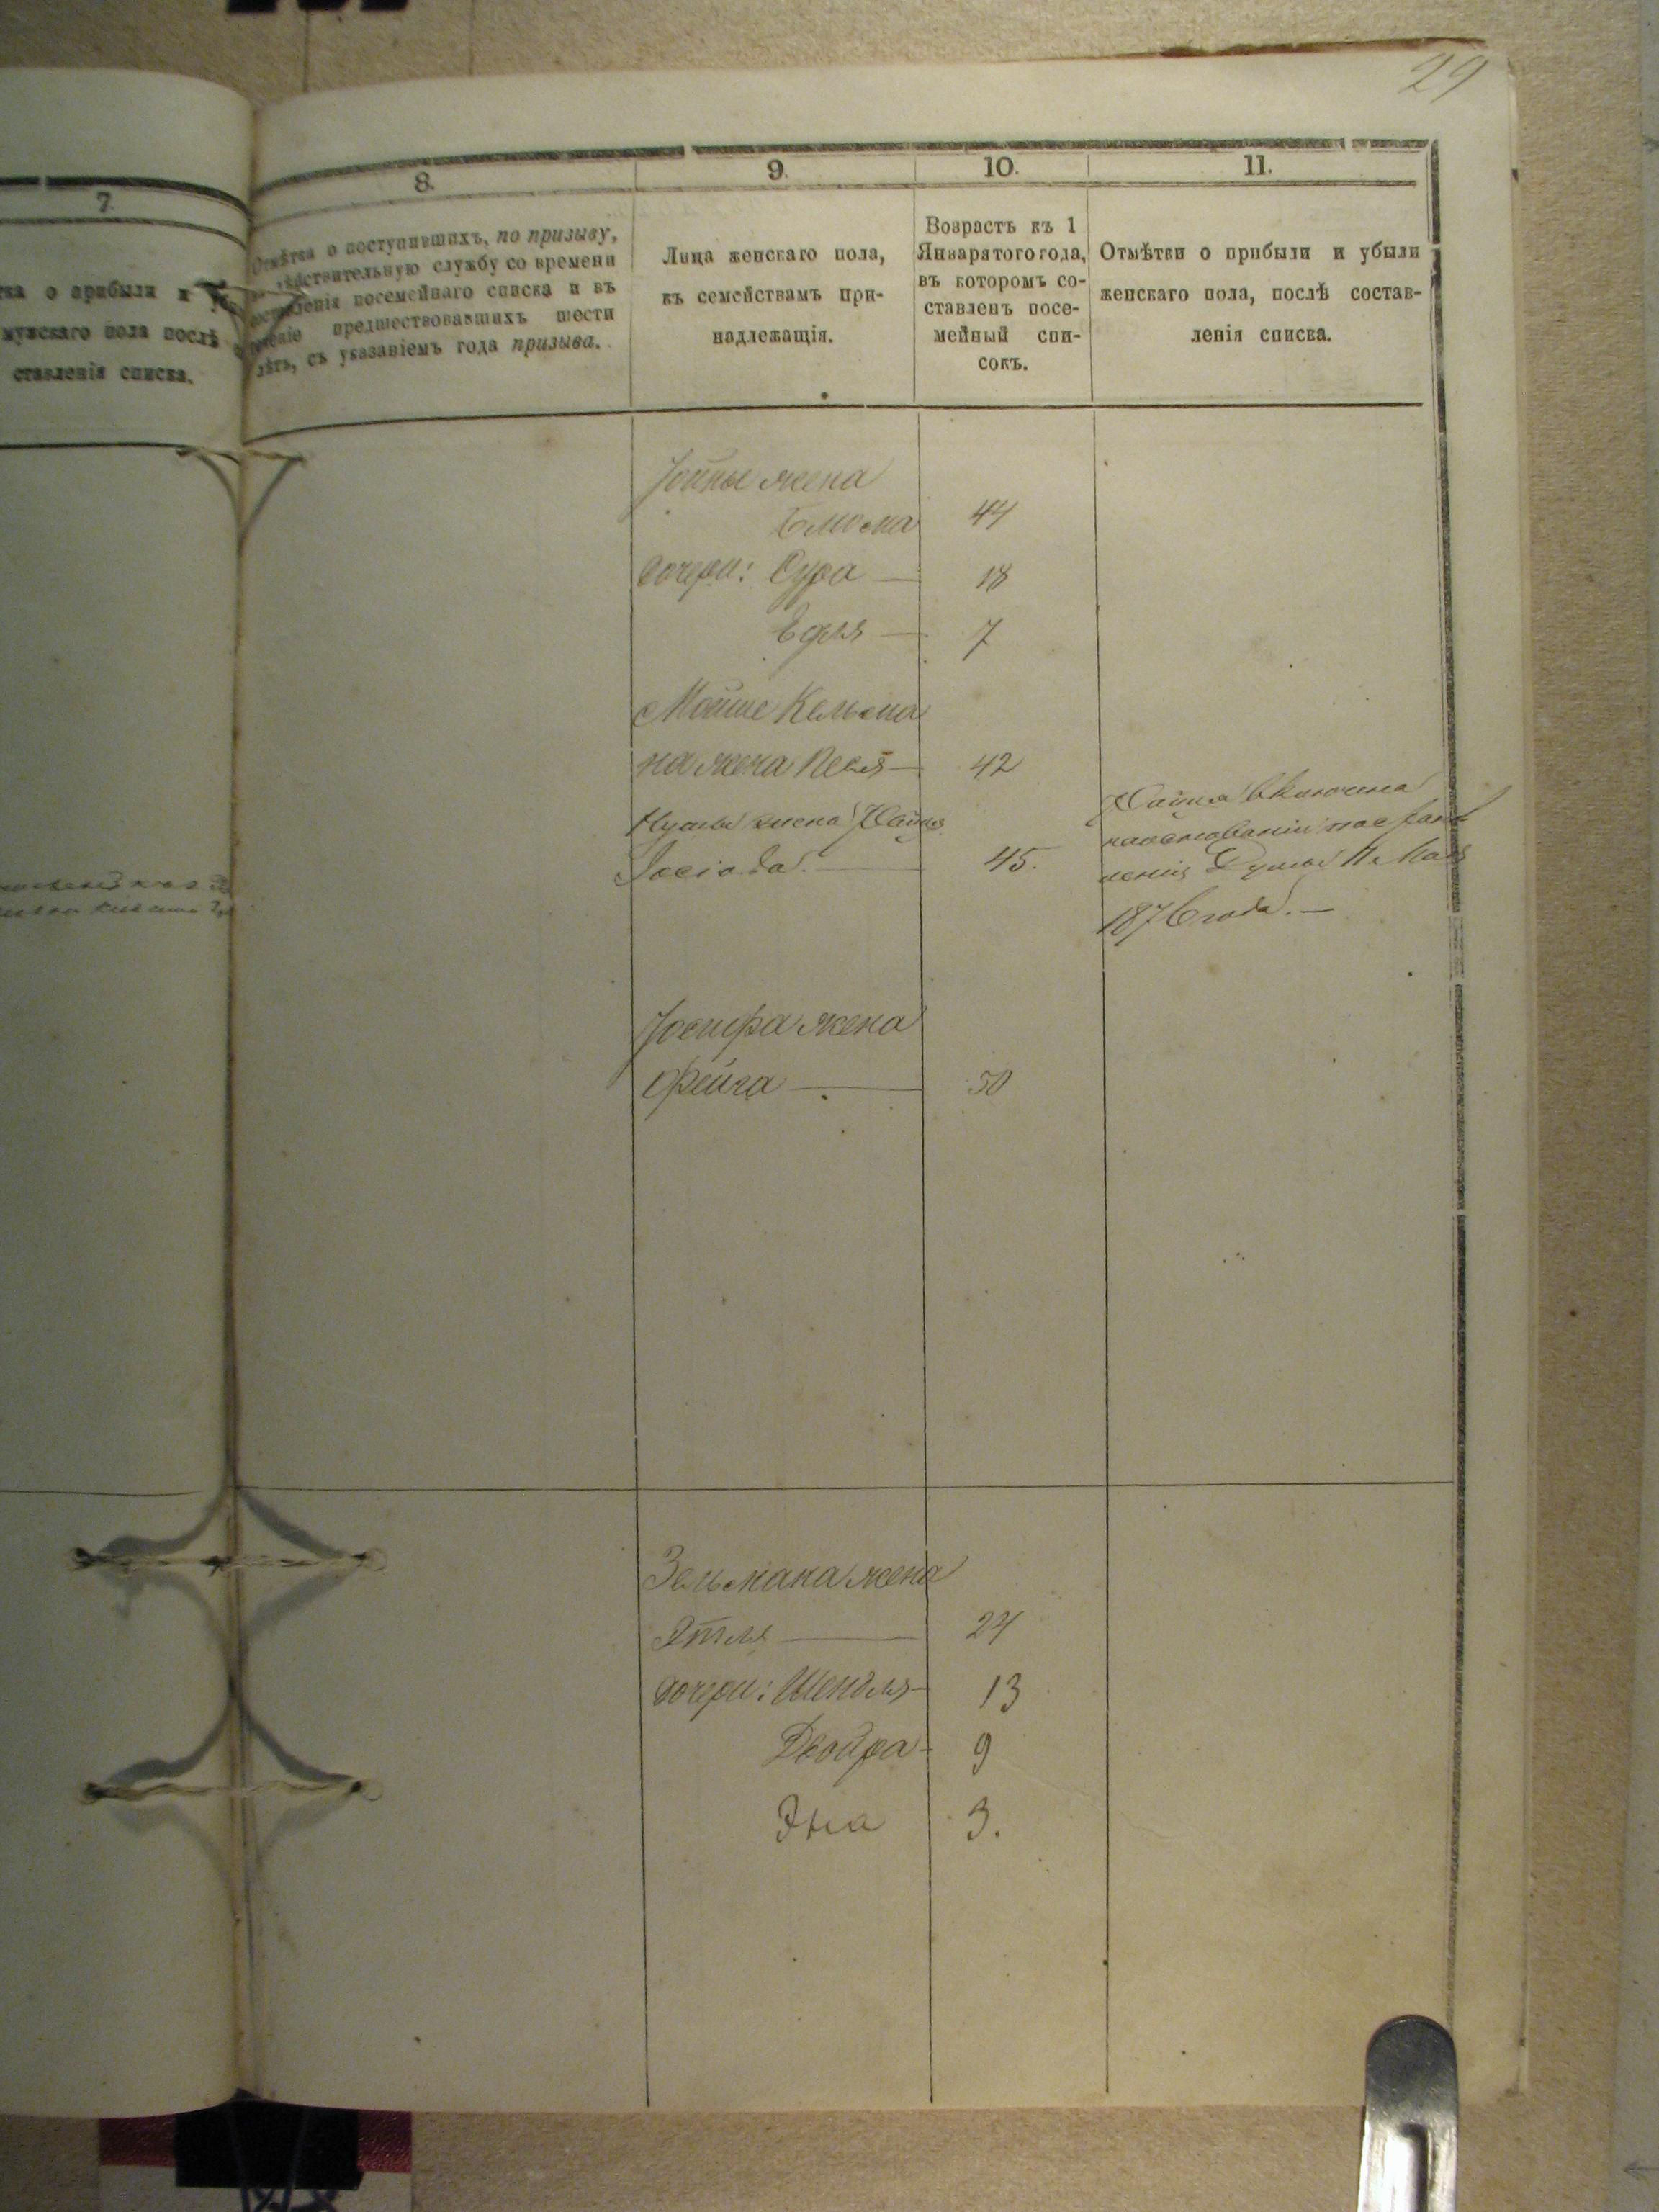 29
7
8.
9.
10.
11.
о прибыли и
мужскаго пола послѣ
ставленія списка.
Отмѣтка о поступившихъ, по призыву,
дѣйствительную службу со времени
составленія посемейнаго списка и въ
теченіе предшествовавшихъ шести
лѣтъ, съ указаніемъ года призыва.
Лица женскаго пола,
къ семействамъ при-
надлежащія.
Возрастъ къ 1
Января того года,
въ которомъ со-
ставленъ посе-
мейный спи-
сокъ.
Отмѣтки о прибыли и убыли
женскаго пола, послѣ состав-
ленія списка.
Іойны жена
44
дочери: Сура — 18
Едля — 7
Мойше Кельма
на жена Песя — 42
жена Хайня
45.
Хайня включена
на основаніи постанов
ленія Думы
1876 года. —
Іосифа жена
Фейга — 50
Зельмана жена
Этля — 24
дочери: Шендля — 13
Двойра - 9
Эна 3.